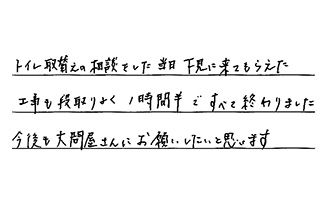 トイレ取替えの相談をした当日下見に来てもらえた
工事も段取りよく1時間半ですべて終わりました
今後も大問屋さんにお願いしたいと思います